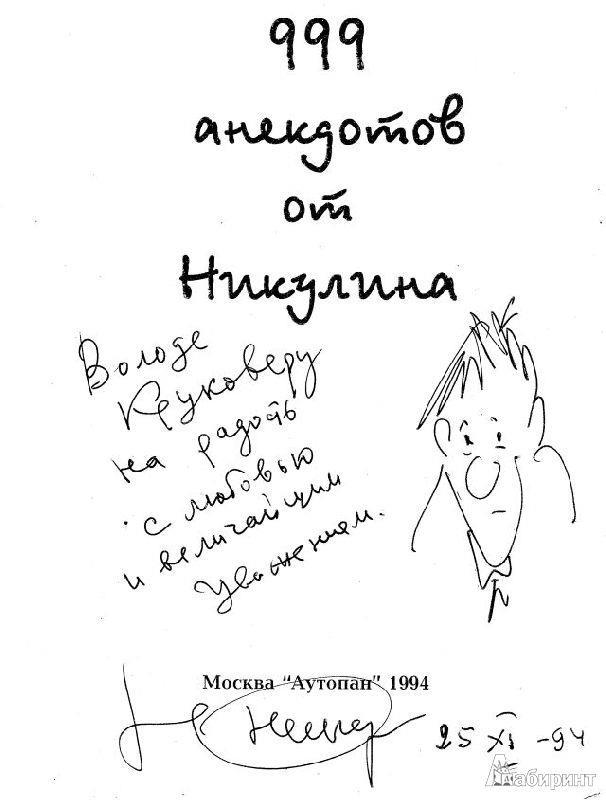 999
анекдотов
от
Никулина
Володе
Круковеру
на радость
с любовью
и величайшим
уважением.
Москва "Аутопан" 1994
25 XI -94
Лабиринт